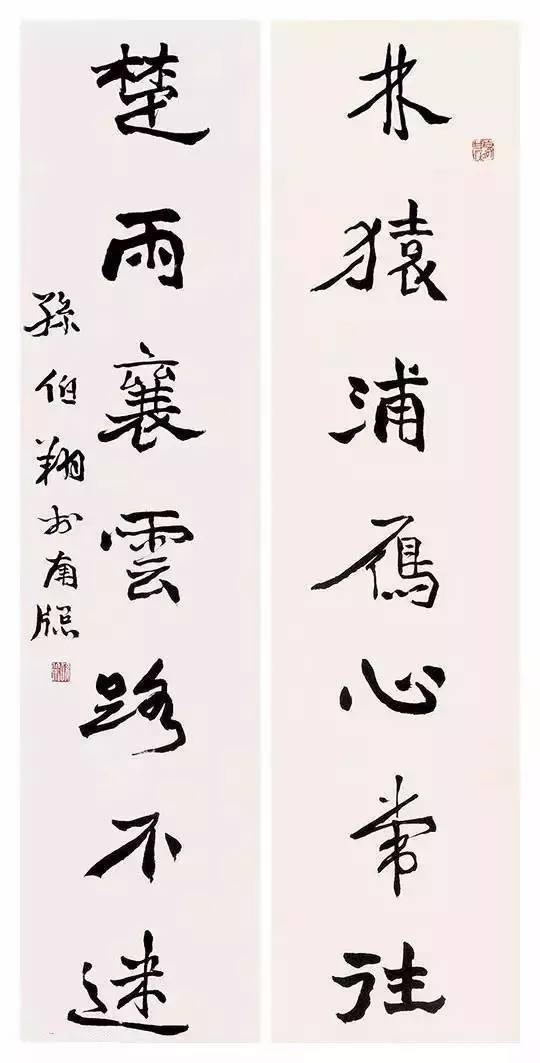 林猿浦雁心常往
楚雨襄雲路不迷
孫伯翔於南牕